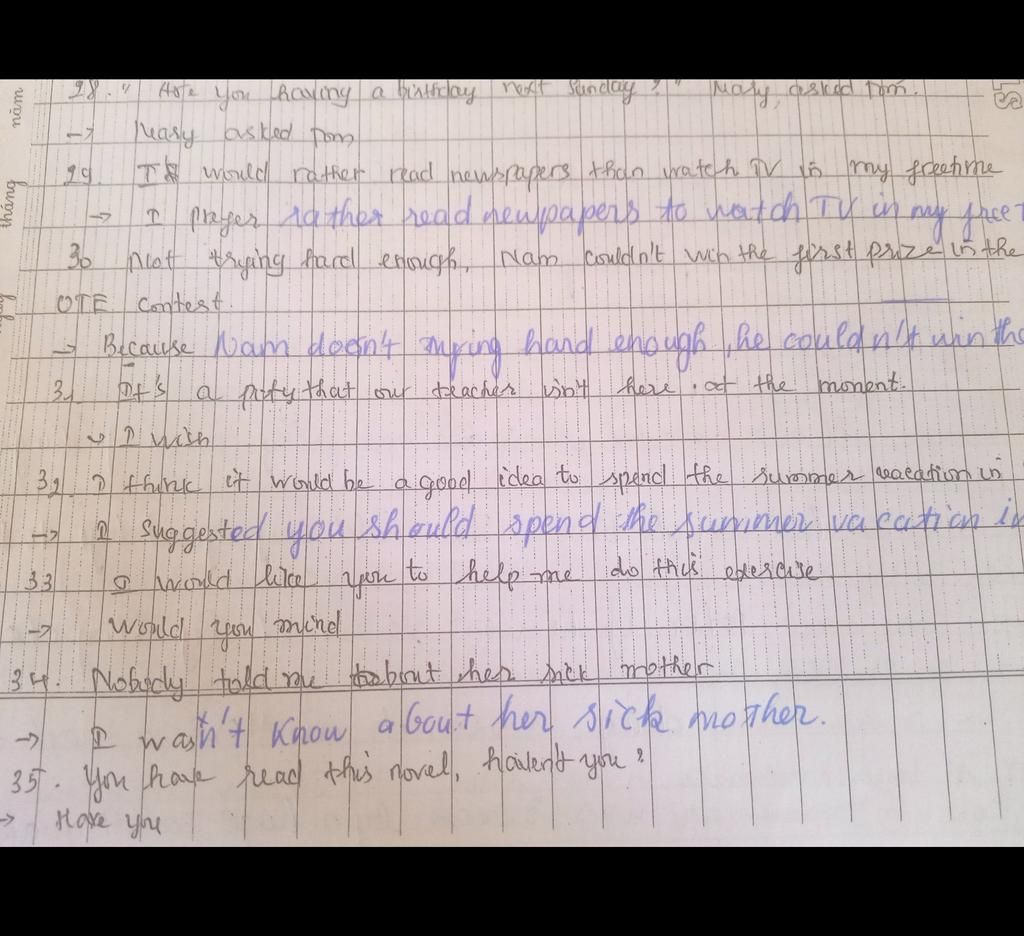 năm
tháng
28. " Are you having a birthday next Sunday? " Mary, asked Tom.
-> Mary asked Tom
29. I would rather read newspapers than watch TV in my freetime
-> I prefer rather read newpapers to watch TV in my free
30 Not trying hard enough, Nam couldn't win the first prize in the
OTE contest.
-> Because Nam doesn't trying hard enough, he couldn't win the
31 It's a pity that our teacher isn't here at the moment.
-> I wish
32. I think it would be a good idea to spend the summer vacation in
-> I suggested you should spend the summer vacation in
33 I would like you to help me do this exercise
-> Would you mind
34. Nobody told me about her sick mother
-> I wasn't know about her sick mother.
35. You have read this novel, haven't you?
-> Have you